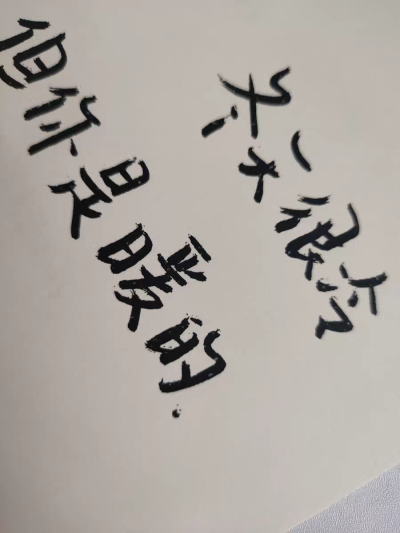 冬天很冷
但你是暖的.